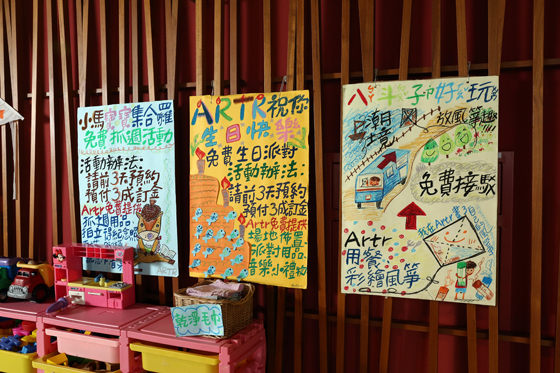 小馬寶寶集合囉
免費抓週活動
活動辦法:
請前3天預約
預付3成訂金
Artr免費提供
抓週用品
ARTR祝你
生日快樂
免費生日派對
活動辦法:
請前3天預約
預付3成訂金
Artr免費提供
場地佈置
派對用品
音樂.小禮物
八斗子好好玩
潮境
放風箏趣
免費接駁
Artr
用餐
彩繪風箏
乾淨毛巾